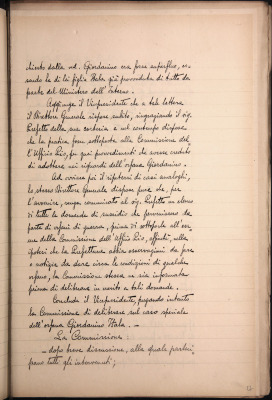 chiesto dalla ved. Giordanino era forse superfluo, es-
sendo la di lei figlia Itala già provveduta di tutto da
parte del Ministero dell'Interno.
Aggiunge il Vicepresidente che a tale lettera
il Direttore Generale rispose subito, ringraziando il sig.
Prefetto della sua cortesia e nel contempo dispose
che la pratica fosse sottoposta alla Commissione del-
l'Ufficio Pio, per quei provvedimenti che avesse creduto
di adottare nei riguardi dell'orfana Giordanino.
Ad ovviare poi il ripetersi di casi analoghi,
lo stesso Direttore Generale dispose pure che, per
l'avvenire, venga comunicato al sig. Prefetto un elenco
di tutte le domande di sussidio che perverranno da
parte di orfani di guerra, prima di sottoporle all'esa-
me della Commissione dell'Ufficio Pio, affinché, nella
ipotesi che la Prefettura abbia osservazioni da fare
o notizie da dare circa le condizioni di qualche
orfano, la Commissione stessa ne sia informata
prima di deliberare in merito a tali domande.
Conclude il Vicepresidente, pregando intanto
la Commissione di deliberare sul caso speciale
dell'orfana Giordanino Itala. —
La Commissione:
- dopo breve discussione, alla quale parteci-
pano tutti gli intervenuti;